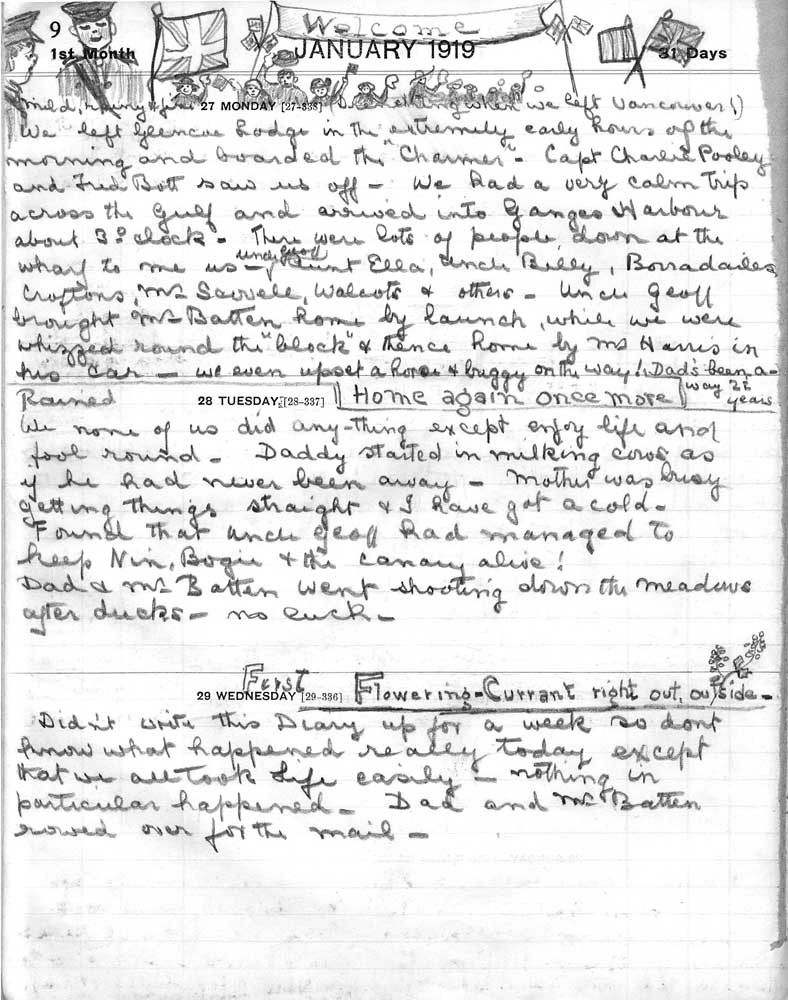 9
Welcome
1st Month JANUARY 1919 31 Days
(mild, rainy & fine 27 MONDAY [27-338] when we left Vancouver!)
We left Glencoe Lodge in the extremely early hours of the
morning and boarded the "Charmer". Capt Charlie Pooley
and Fred Bott saw us off - We had a very calm trip
across the Gulf and arrived into Ganges Harbour
about 3 o'clock - There were lots of people down at the
wharf to me us - uncle Geoff, Aunt Ella, Uncle Billy, Borradailes
Croftons, Mr Scovell, Walcots & others - Uncle Geoff
brought Mr Batten home by launch, while we were
whizzed round the "block" & thence home by Mr Harris in
his car - we even upset a horse & buggy on the way! Dad's been a-
way 2½ years
Rained 28 TUESDAY [28-337] Home again once more
We none of us did any-thing except enjoy life and
fool round - Daddy started in milking cows as
if he had never been away - Mother was busy
getting things straight & I have got a cold -
Found that uncle Geoff had managed to
keep Nin, Bogie & the canary alive!
Dad & Mr Batten went shooting down the meadows
after ducks - no luck -
29 WEDNESDAY [29-336] First Flowering-Currant right out, outside -
Didn't write this Diary up for a week so dont
know what happened really today except
that we all took life easily - nothing in
particular happened - Dad and Mr Batten
rowed over for the mail -